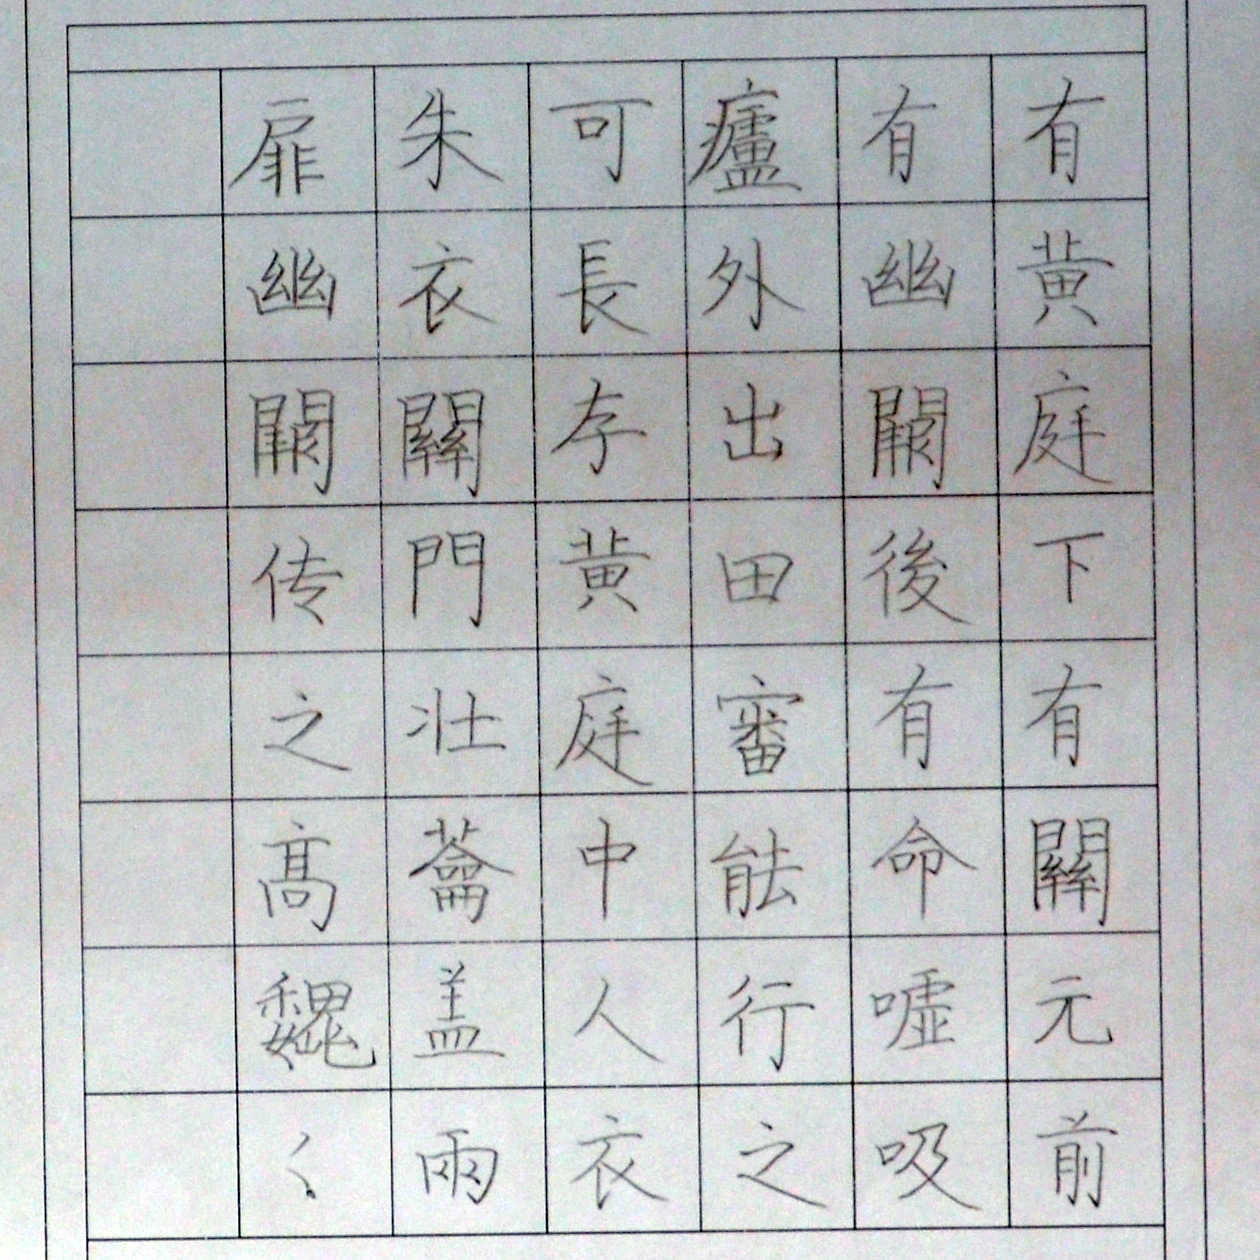 有黄庭下有關元前
有幽闕後有命嘘吸
廬外出田審能行之
可長存黄庭中人衣
朱衣關門壯蘥盖兩
扉幽闕传之高巍〻